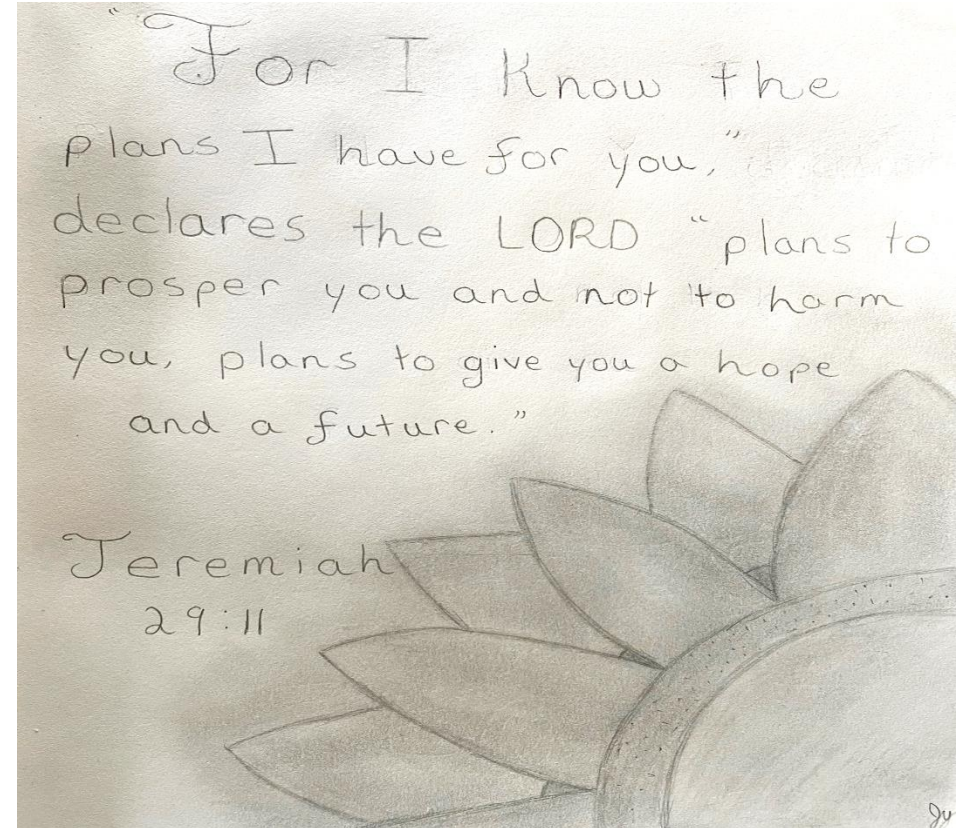 "For I Know the
plans I have for you,"
declares the LORD "plans to
prosper you and not to harm
you, plans to give you a hope
and a future."
Jeremiah
29:11